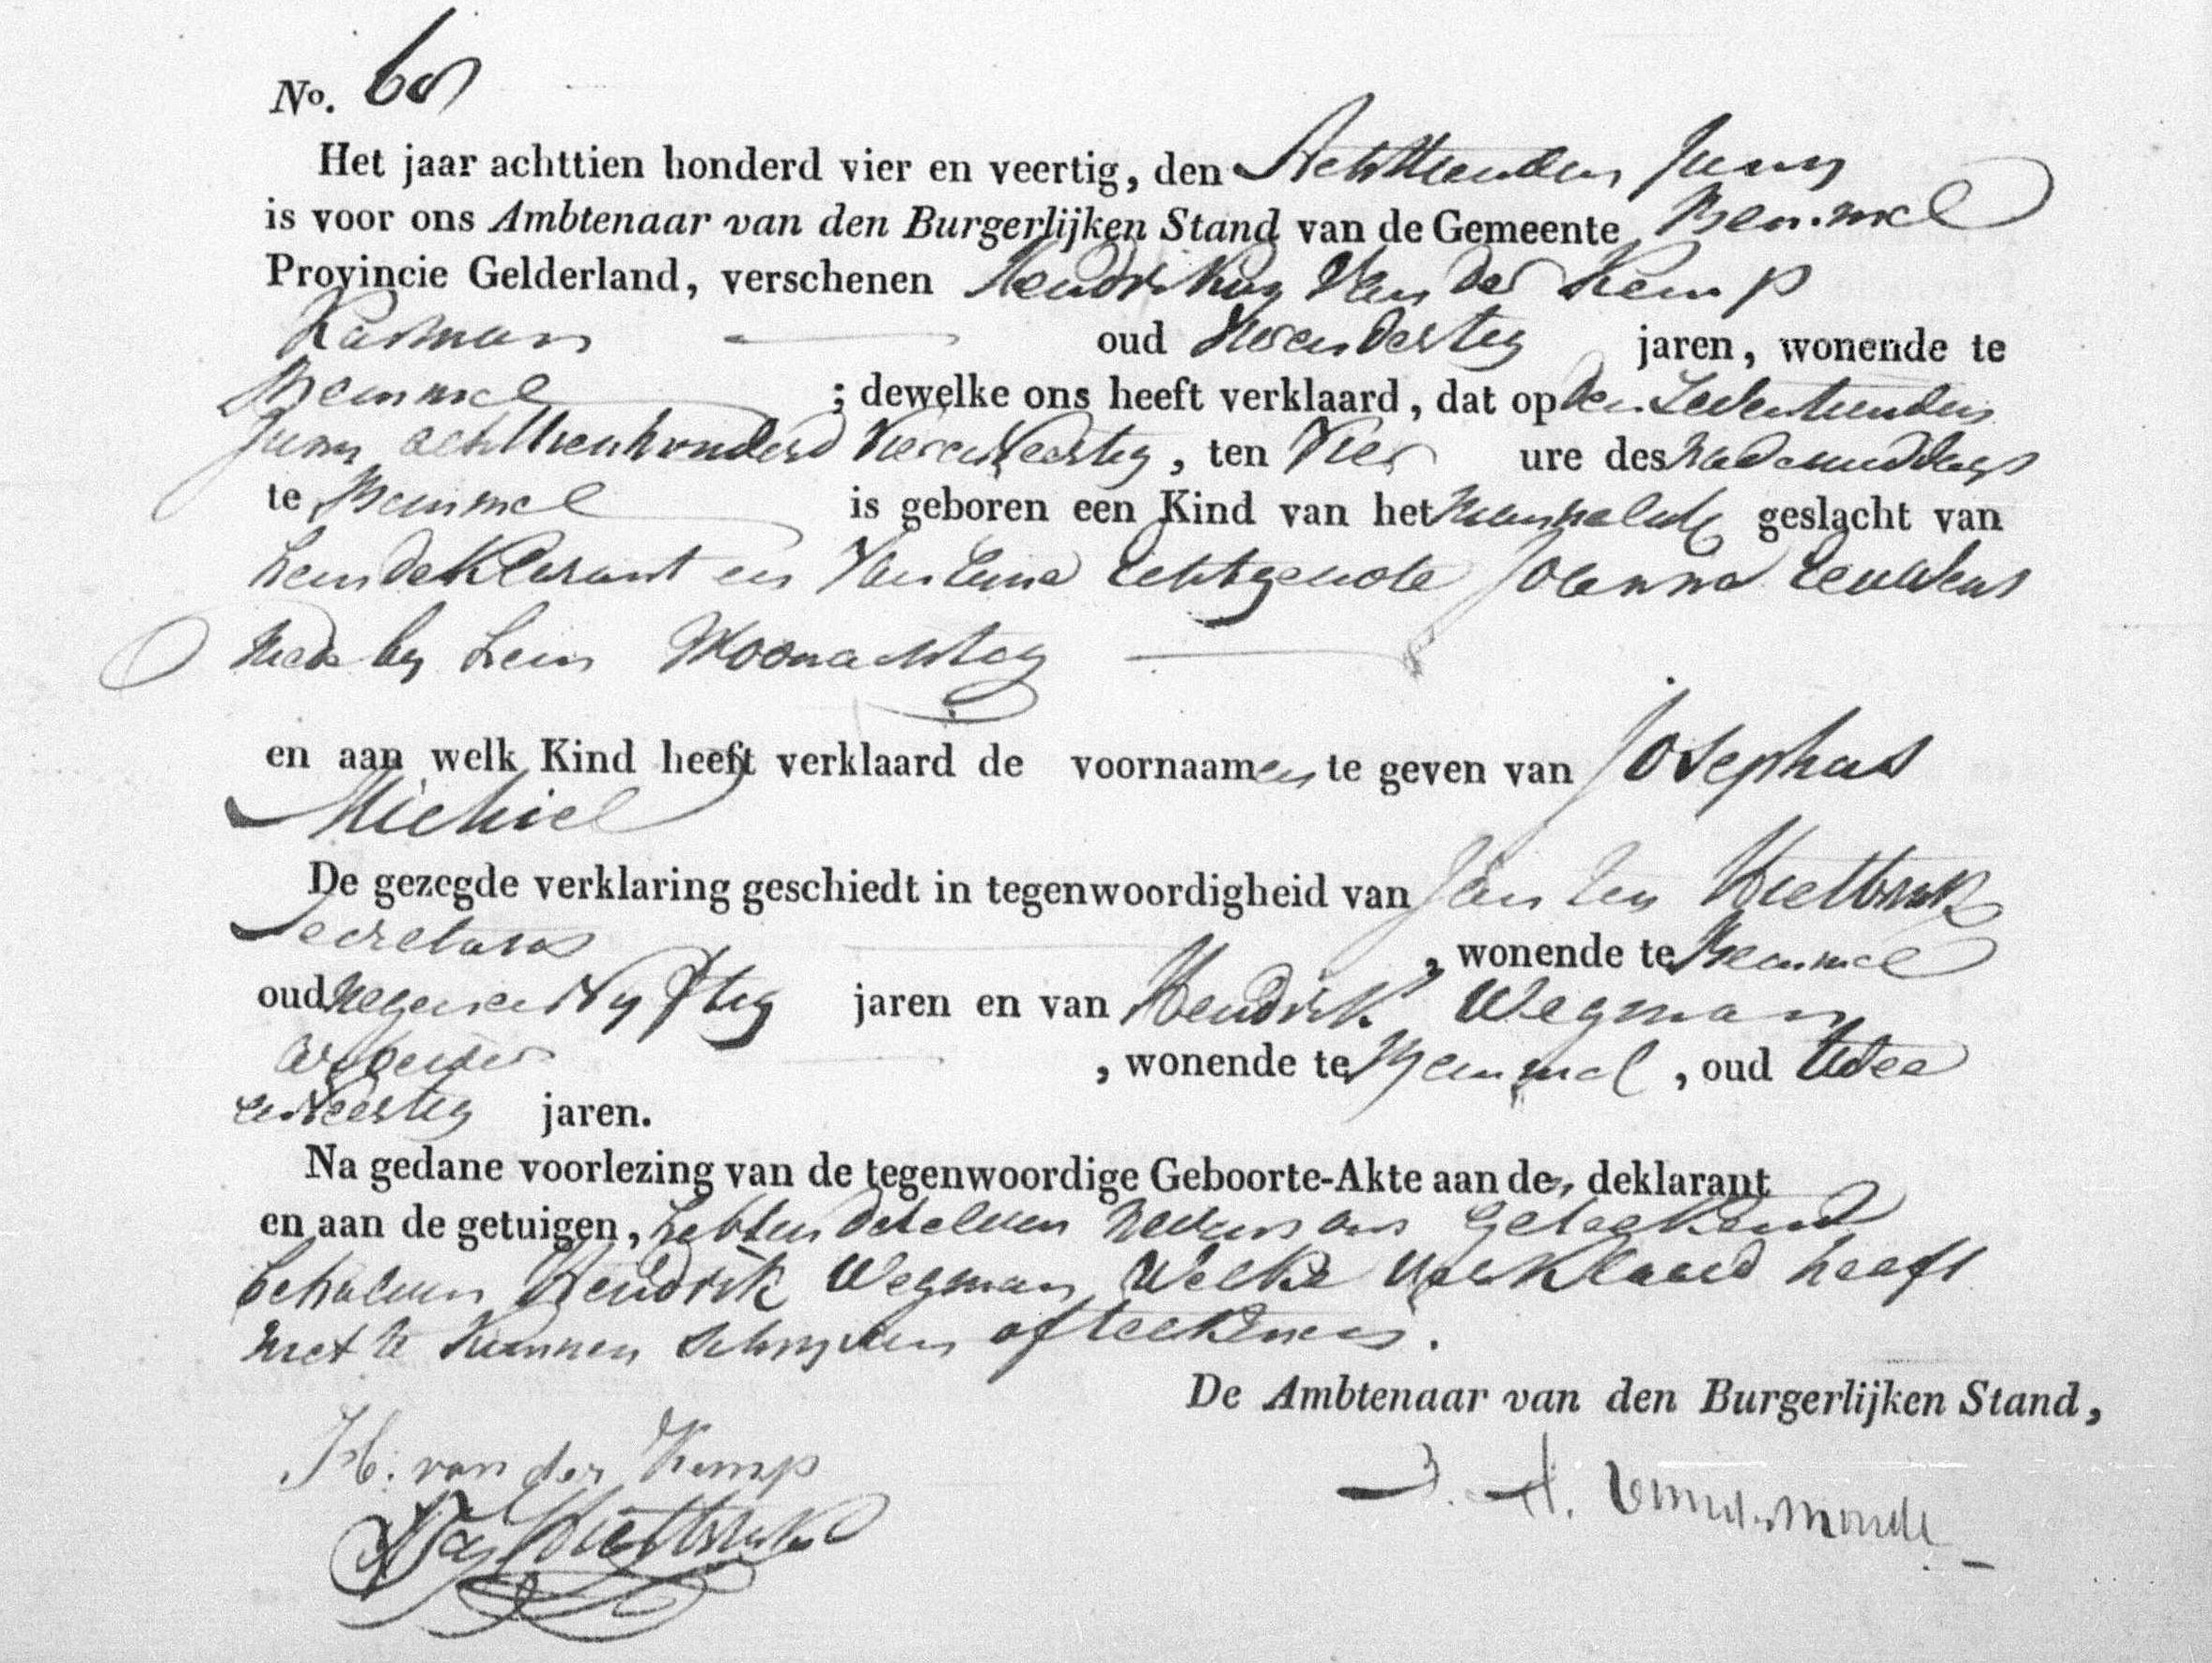 No. 60
Het jaar achttien honderd vier en veertig, den Achttienden Juny
is voor ons Ambtenaar van den Burgerlijken Stand van de Gemeente Bemmel
Provincie Gelderland, verschenen Hendrikus Van der Kemp
oud Vierendertig jaren, wonende te
Bemmel ; dewelke ons heeft verklaard, dat op den Zeventienden
Juny achttienhonderd Vierenveertig, ten Vier ure des nademiddags
te Bemmel is geboren een Kind van het Mannelyk geslacht van
hem deklarant en Van zyne Echtgenote Johanna
mede by hem Woonachtig
en aan welk Kind heeft verklaard de voornaamen te geven van Josephus
Michiel
De gezegde verklaring geschiedt in tegenwoordigheid van Jan ten
Secretaris , wonende te Bemmel
oud Negenenvyftig jaren en van Hendrik Wegman
arbeider , wonende te Bemmel , oud twee
enveertig jaren.
Na gedane voorlezing van de tegenwoordige Geboorte-Akte aan den deklarant
en aan de getuigen, hebben dezelven nevens ons geteekend
behalven Hendrik Wegman Welke verklaard heeft
niet te kunnen schryven of teekenen.
De Ambtenaar van den Burgerlijken Stand,
H. van der Kemp